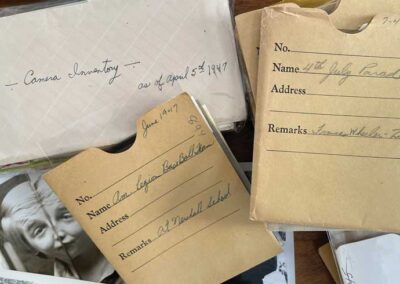 Camera Inventory
as of April 5th 1947
June 1947
No.
Name Am Legion Base Ball Team
Address
Remarks At Newhall School
7-4
No.
Name 4th July Parad
Address
Remarks Frances Wheeler